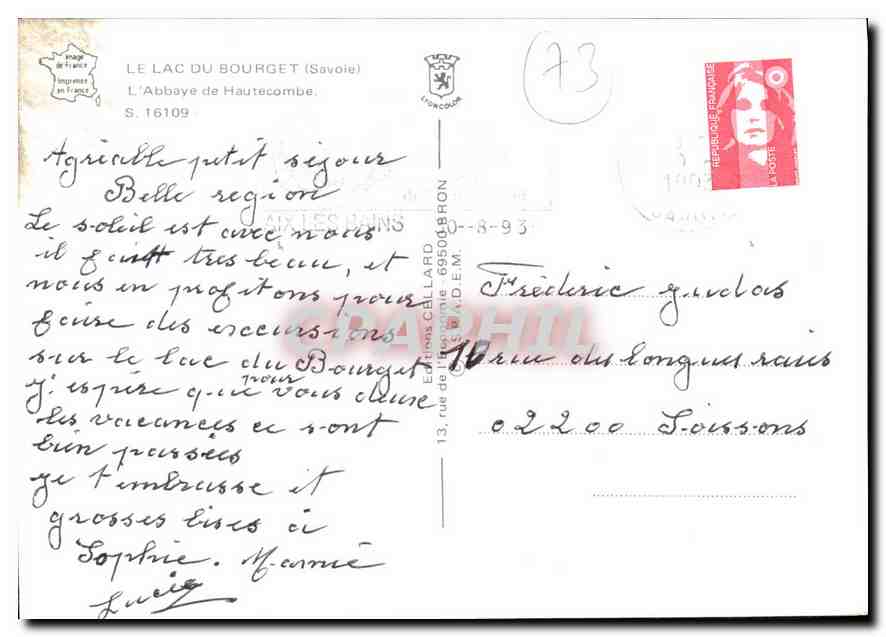 Image
de France
Imprimée
en France
LE LAC DU BOURGET (Savoie)
L'Abbaye de Hautecombe.
S. 16109
LYONCOLOR
73
RÉPUBLIQUE FRANÇAISE
LA POSTE
AIX LES BAINS
0-8-93
Agréable petit séjour
Belle region
Le soleil est avec nous
il fait tres beau, et
nous en profitons pour
faire des excursions
sur le lac du Bourget
J'espère que pour vous deux
les vacances ce sont
bien passées
je t'embrasse et
grosses bises à
Sophie. Mamie
Lucie
Editions CELLARD
13, rue de l'Economie - 69500 BRON
CPAPHIL
Fréderic Judas
16 rue des longues raies
02200 Soissons